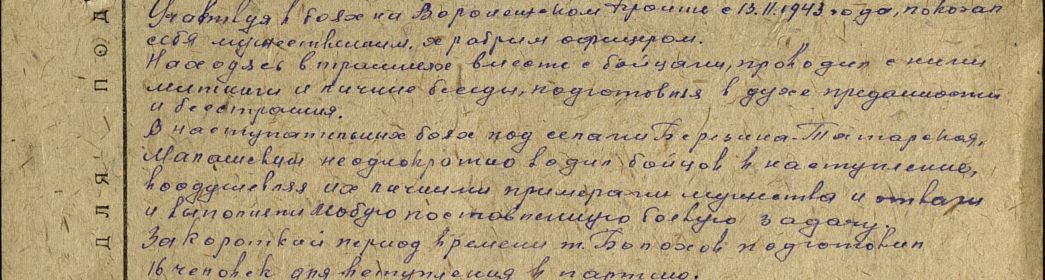 Участвуя в боях на Воронежском фронте с 13.11.1943 года, показал
себя мужественным, храбрым офицером.
Находясь в траншеях вместе с бойцами, проводил с ними
митинги и личные беседы, подготовляя в духе преданности
и бесстрашия.
В наступательных боях под селами Березина-Татарская,
Малашевцы неоднократно водил бойцов в наступление,
воодушевляя их личными примерами мужества и отваги
и выполняли любую поставленную боевую задачу.
За короткий период времени т. Болохов подготовил
16 человек для вступления в партию.
ДЛЯ ПОД